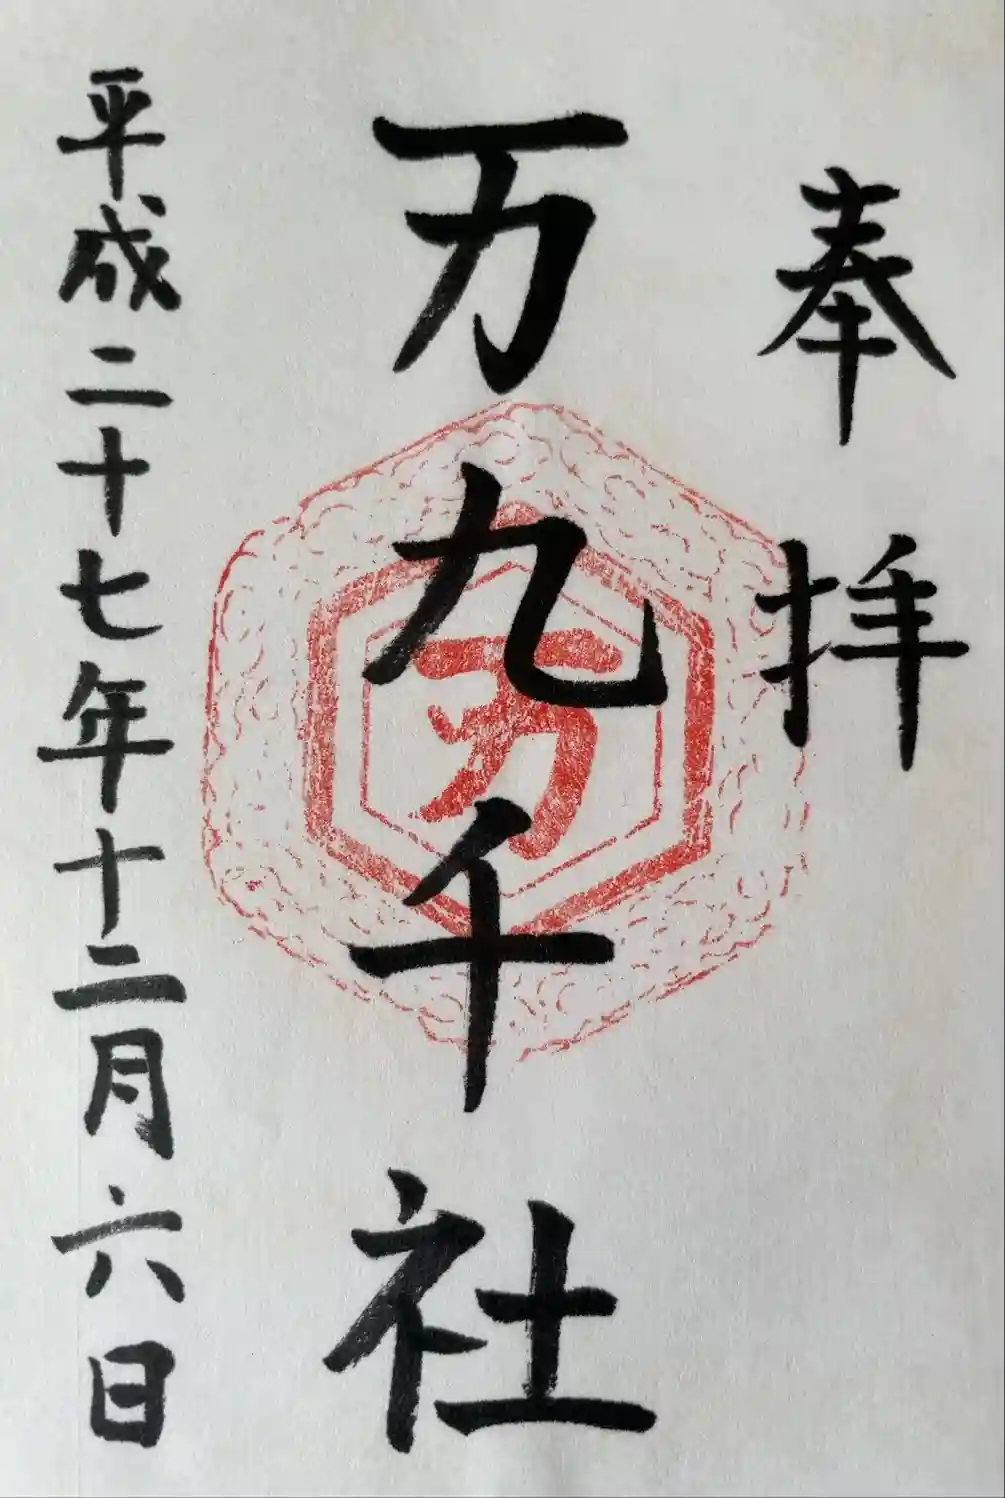 奉拝
万九千社
平成二十七年十二月六日
万